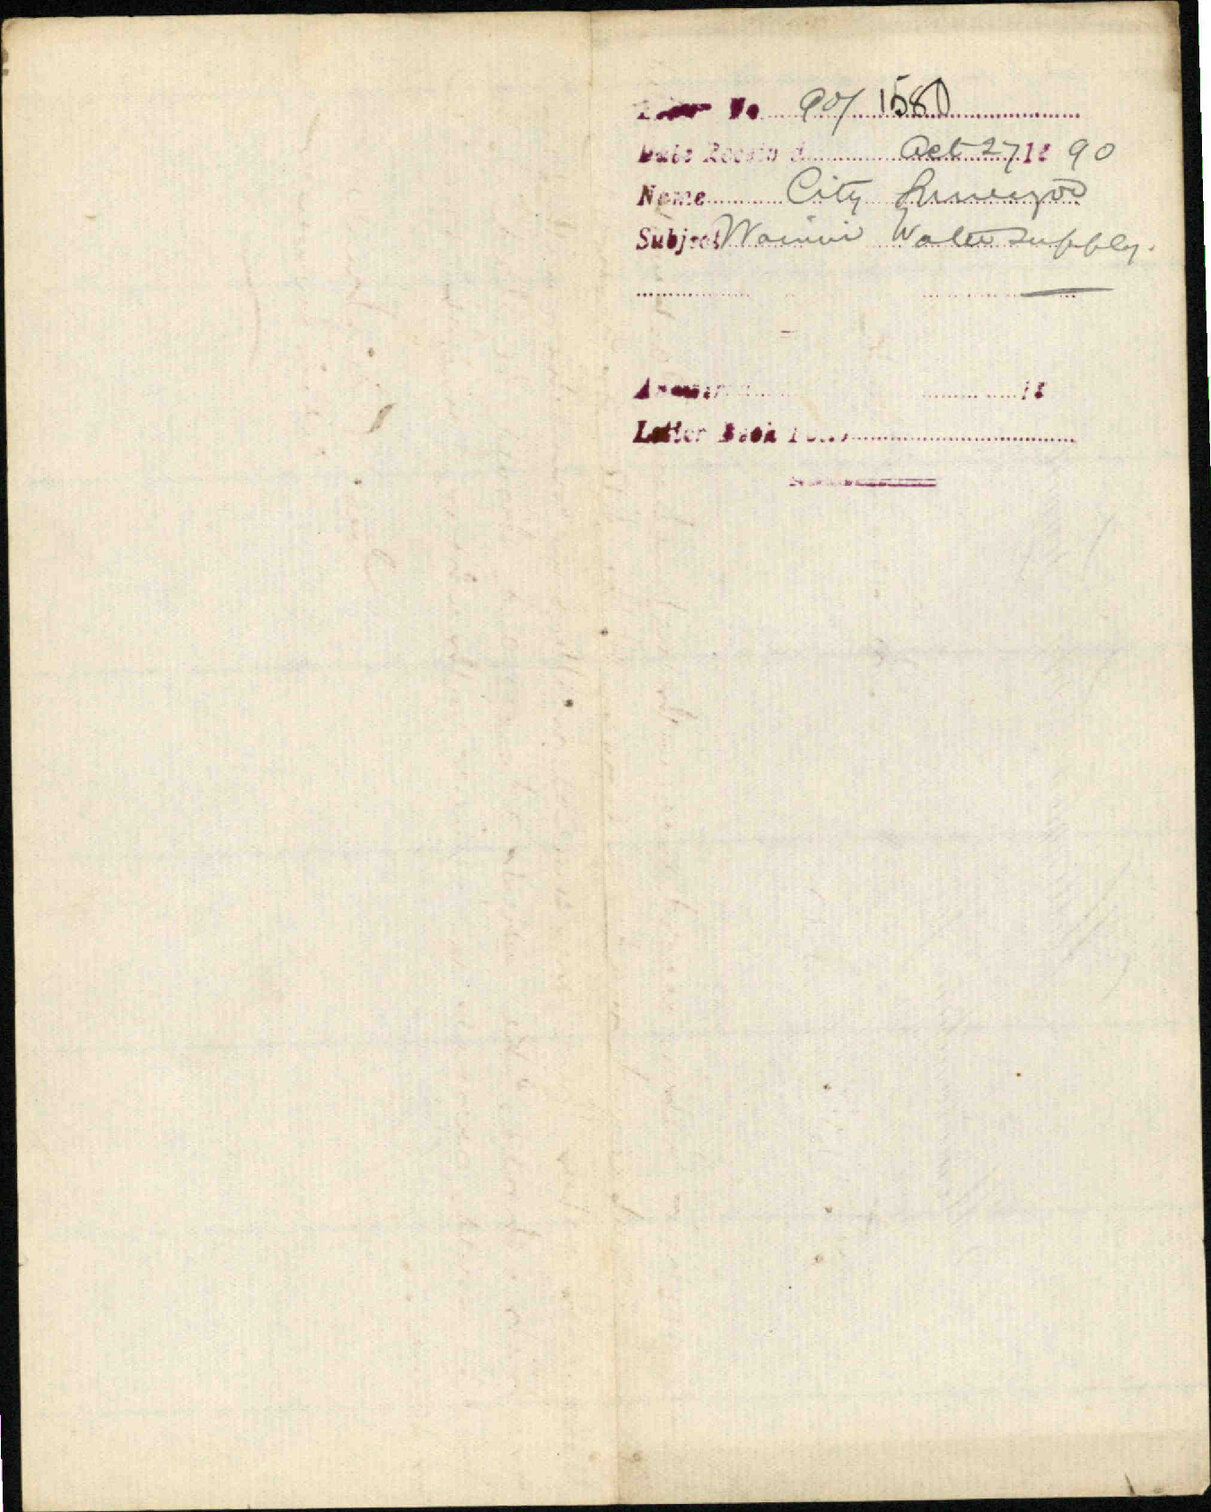 No 90/1580
Date Receiv d Oct 27 18 90
Name City Surveyor
Subject Wainui Water Supply.
Answered 18
Letter Book Folio